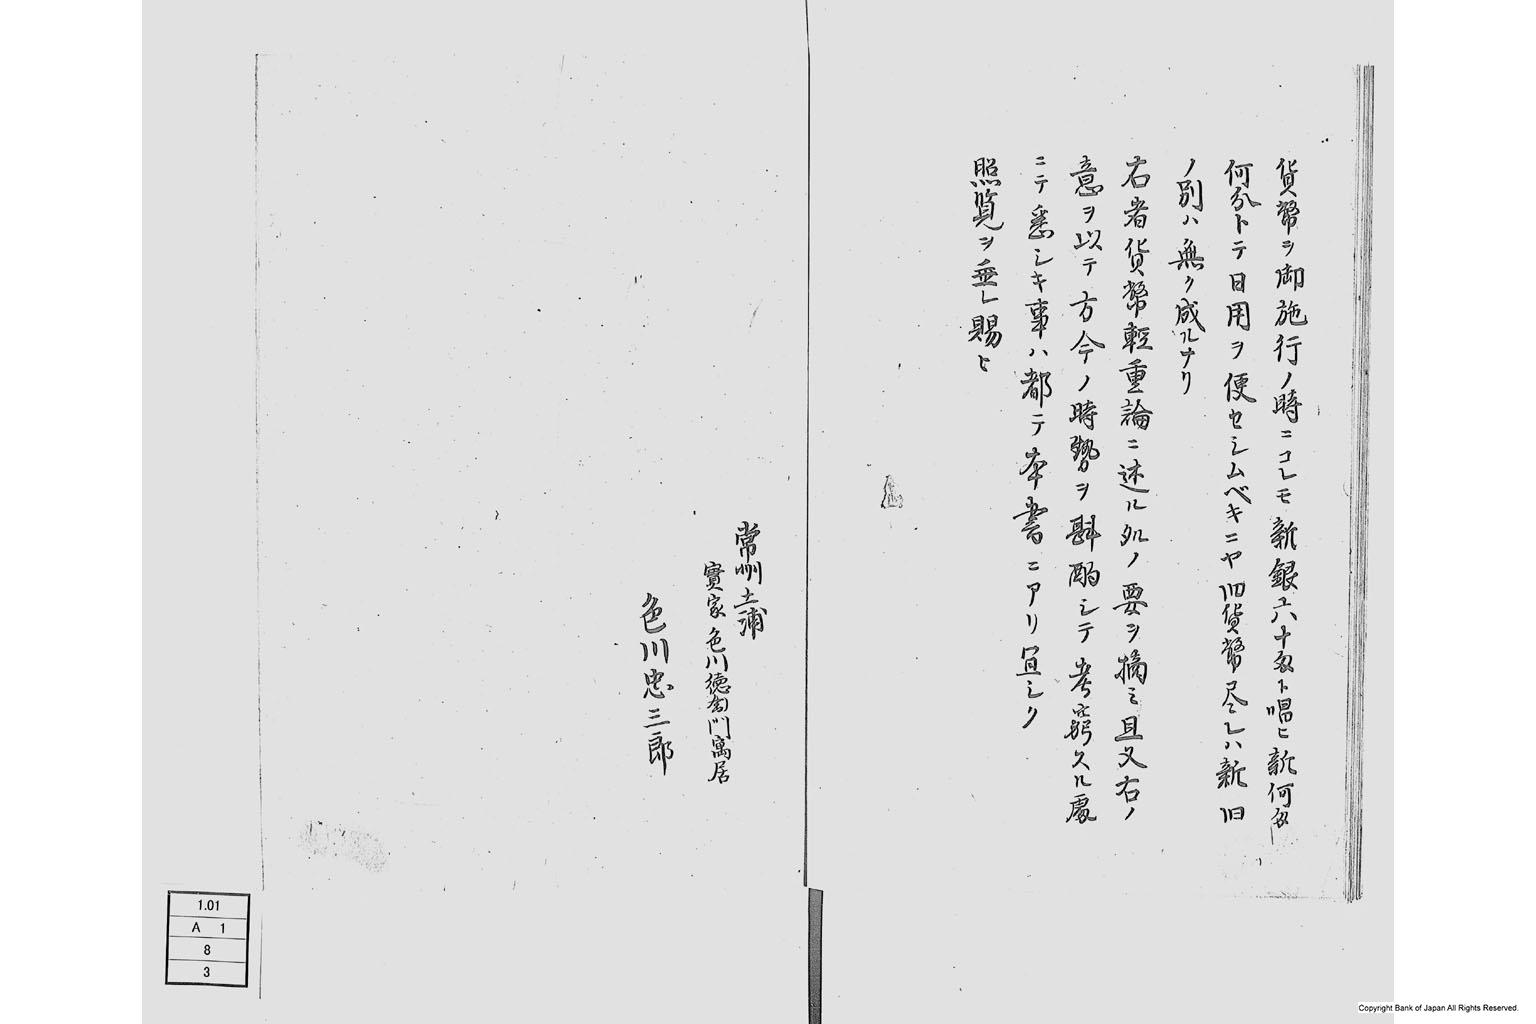 貨幣ヲ御施行ノ時ニコレモ新銀六十匁ト唱ヒ新何匁
何分トテ日用ヲ便セシムベキニヤ旧貨幣尽レハ新旧
ノ別ハ無ク成ルナリ
右者貨幣輕重論ニ述ル処ノ要ヲ摘ミ且又右ノ
意ヲ以テ方今ノ時勢ヲ斟酌シテ考竅久ル處
ニテ悉シキ事ハ都テ本書ニアリ宜シク
照覧ヲ垂レ賜ヒ
常州土浦
實家色川徳右衛門寓居
色川忠三郎
1.01
A 1
8
3
Copyright Bank of Japan All Rights Reserved.